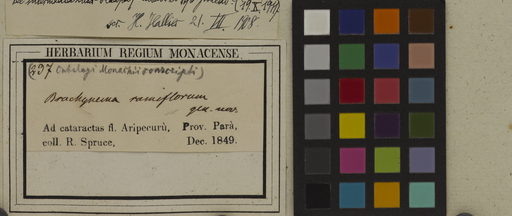 scr. H. Hallier 21. III. 1918
HERBARIUM REGIUM MONACENSE.
(237 Catalogi Monachii conscripti)
Brachynema ramiflorum
gen. nov.
Ad cataractas fl. Aripecurù, Prov. Parà,
coll. R. Spruce, Dec. 1849.